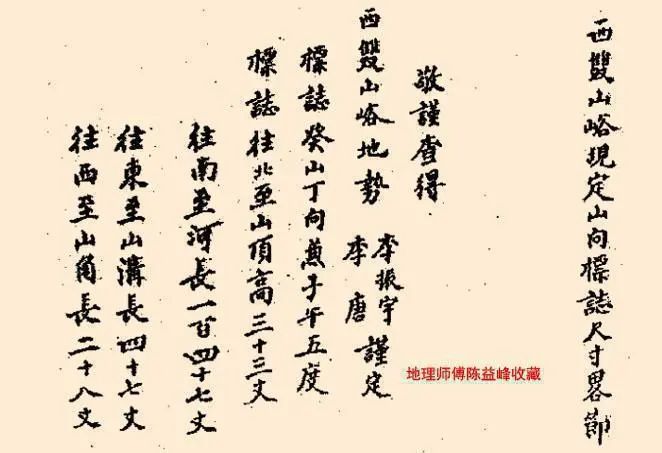 西雙山峪現定山向標誌尺寸畧節
敬謹查得
西雙山峪地勢 李振宇 李唐 謹定
標誌癸山丁向兼子午五度
標誌往北至山頂高三十三丈
往南至河長一百四十七丈
往東至山溝長四十七丈
往西至山角長二十八丈
地理师傅陈益峰收藏